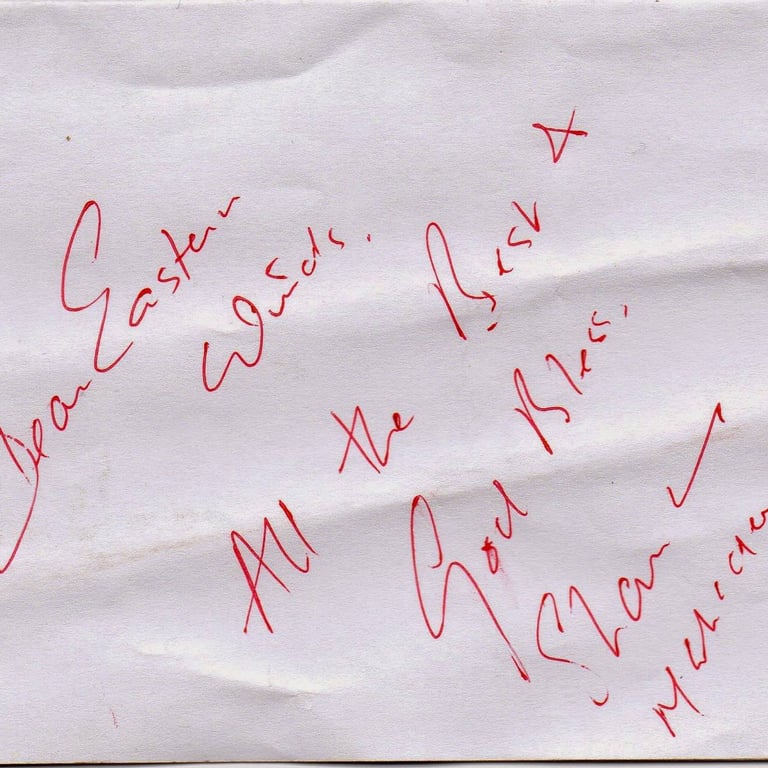 Dear Eastern
Winds.
All the Best +
God Bless.